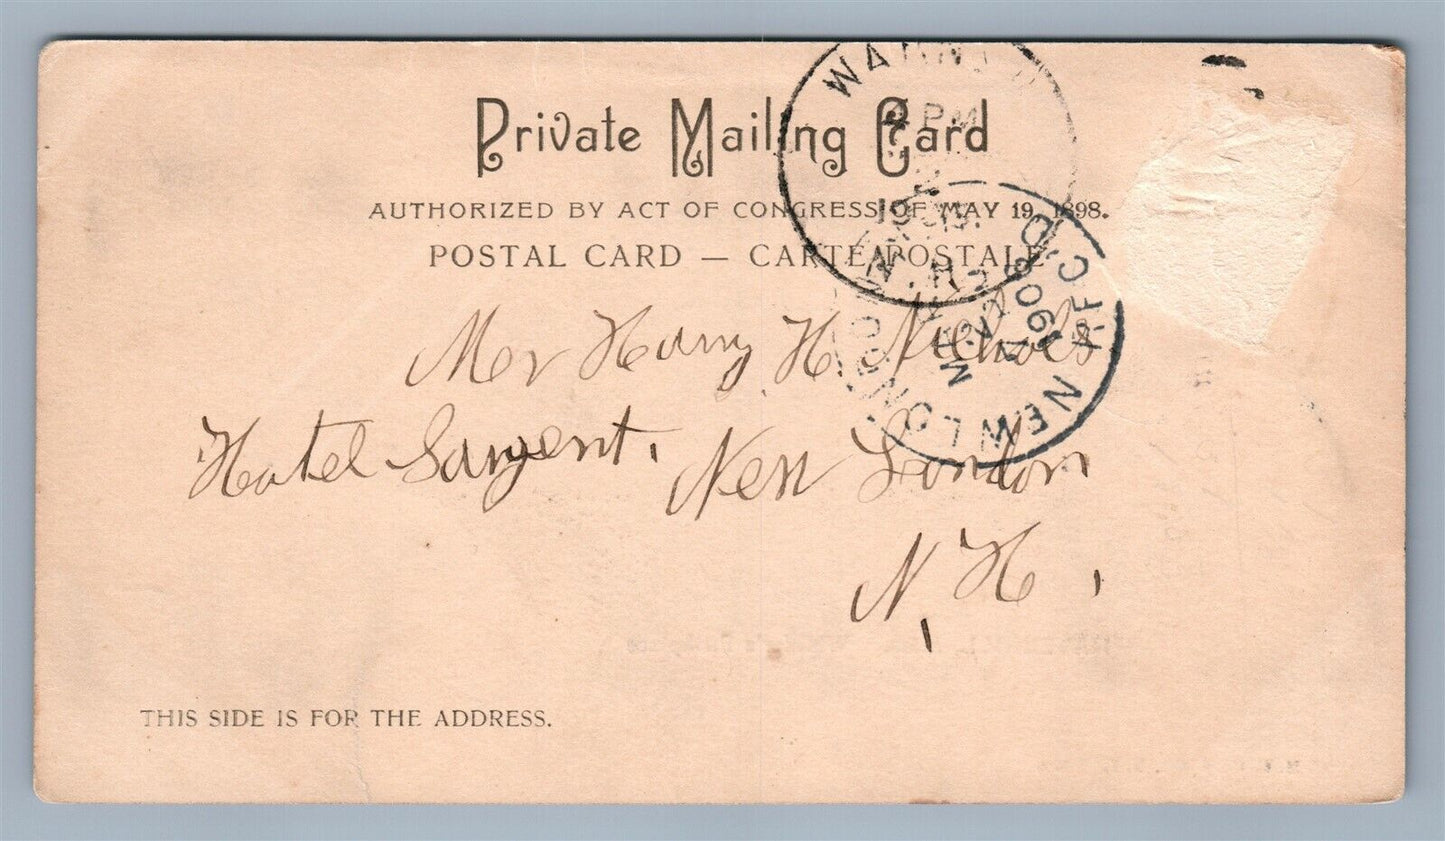 Private Mailing Card
AUTHORIZED BY ACT OF CONGRESS OF MAY 19, 1898.
POSTAL CARD — CARTE POSTALE
4 PM
NEW LONDON
REC'D
1906
Mr Harry H. Nichols
Hotel Sargent. New London
N. H.
THIS SIDE IS FOR THE ADDRESS.